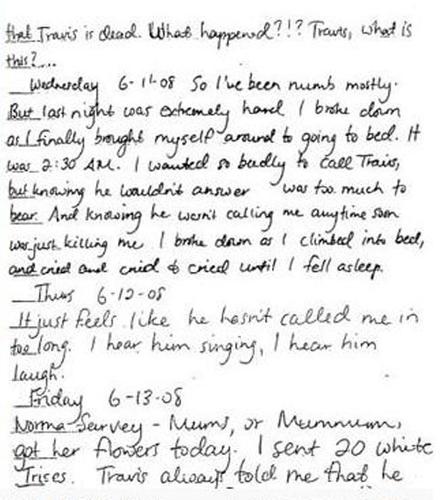 that Travis is dead. What happened?!? Travis, what is
this?...
Wednesday 6-11-08 So I've been numb mostly.
But last night was extremely hard I broke down
as I finally brought myself around to going to bed. It
was 2:30 AM. I wanted so badly to call Travis,
but knowing he wouldn't answer was too much to
bear. And knowing he wasn't calling me anytime soon
was just killing me. I broke down as I climbed into bed,
and cried and cried & cried until I fell asleep.
Thurs 6-12-08
It just feels like he hasn't called me in
too long. I hear him singing, I hear him
laugh.
Friday 6-13-08
Norma Sarvey - Mums, or Mumnum,
got her flowers today. I sent 20 white
Irises. Travis always told me that he